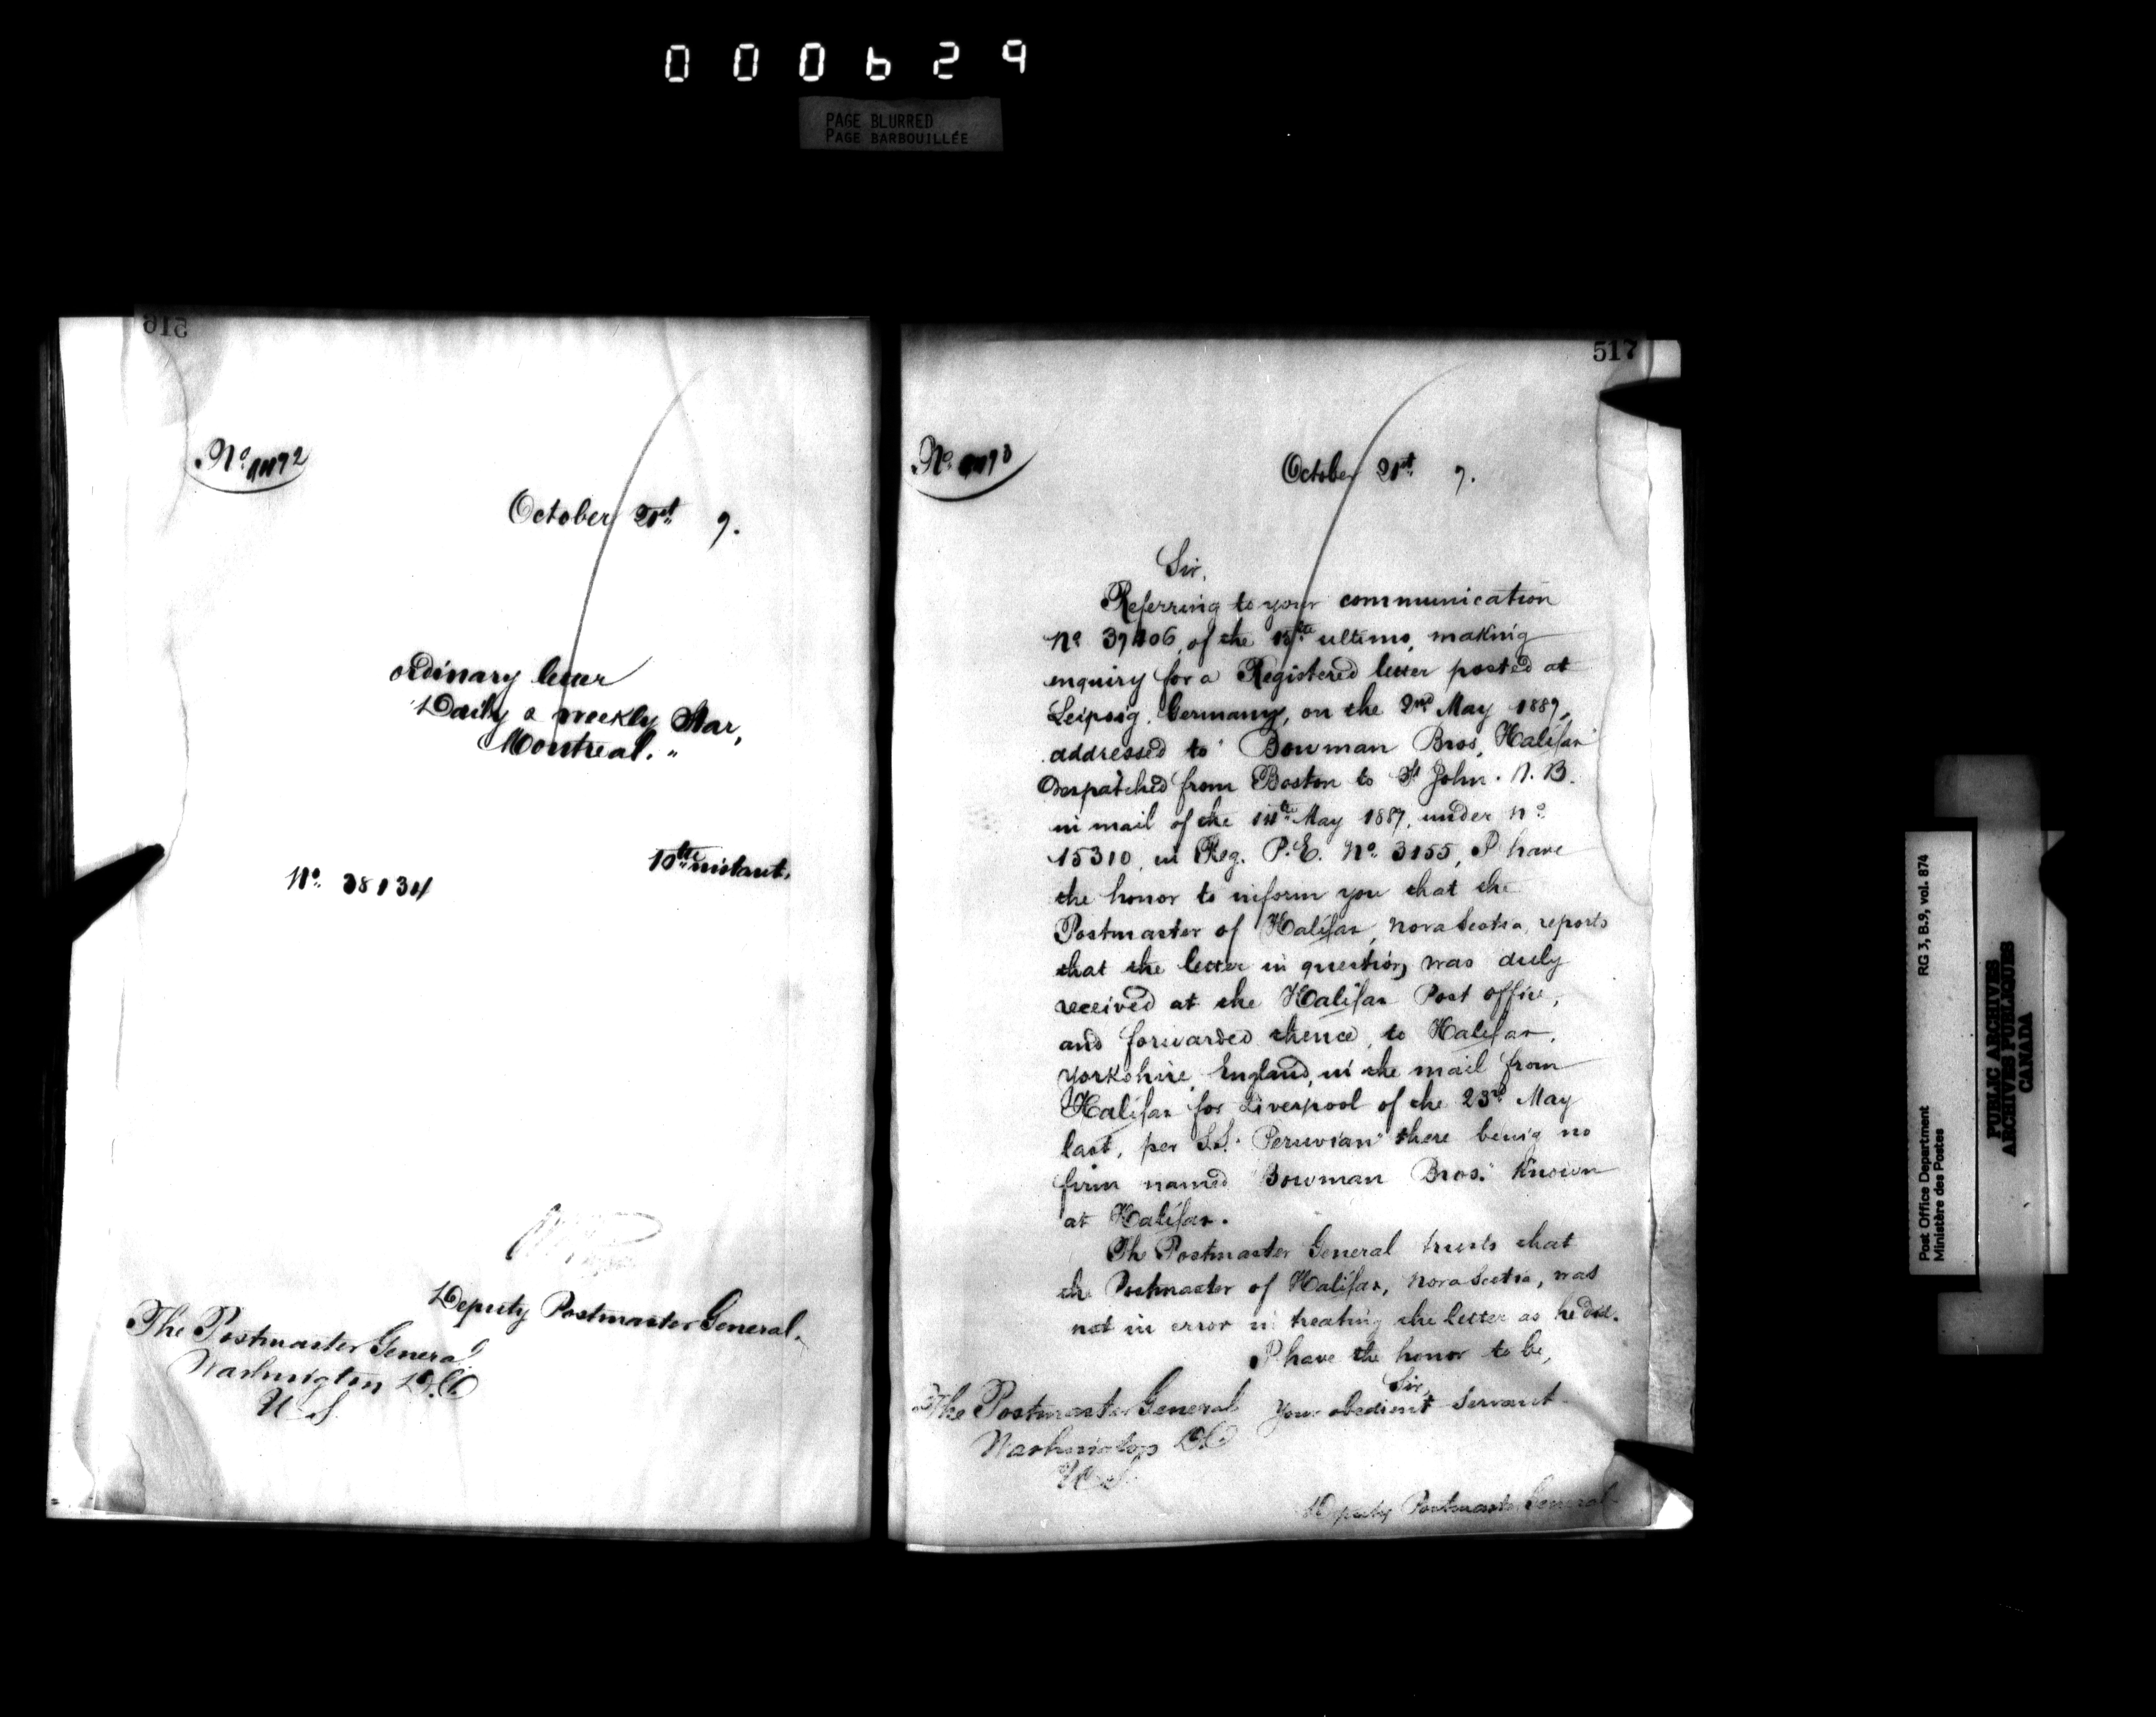 000629
PAGE BLURRED
PAGE BARBOUILLÉE
516
No.
October 21st 9.
ordinary letter
Daily & Weekly Star,
Montreal. "
No. 38134
10th instant.
Deputy Postmaster General.
The Postmaster General
Washington D.C
U.S.
517
No.
October 21st 9.
Sir,
Referring to your communication
No 37406, of the ultimo, making
enquiry for a Registered letter posted at
Leipsig, Germany, on the 2nd May 1887,
addressed to "Bowman Bros, Halifax"
despatched from Boston to St John. N.B.
in mail of the 14th May 1887, under No.
15310, in Reg. P.E. No. 3155, I have
the honor to inform you that the
Postmaster of Halifax, Nova Scotia, reports
that the letter in question, was duly
received at the Halifax Post office,
and forwarded thence, to Halifax,
Yorkshire, England, in the mail from
Halifax for Liverpool of the 23rd May
last, per S.S. "Peruvian" there being no
firm named "Bowman Bros." known
at Halifax.
The Postmaster General trusts that
the Postmaster of Halifax, Nova Scotia, was
not in error in treating the letter as he did.
I have the honor to be,
Sir,
Your obedient Servant
The Postmaster General
Washington D.C
U.S.
Deputy Postmaster General
Post Office Department
Ministère des Postes
RG 3, B.9, vol. 874
PUBLIC ARCHIVES
ARCHIVES PUBLIQUES
CANADA